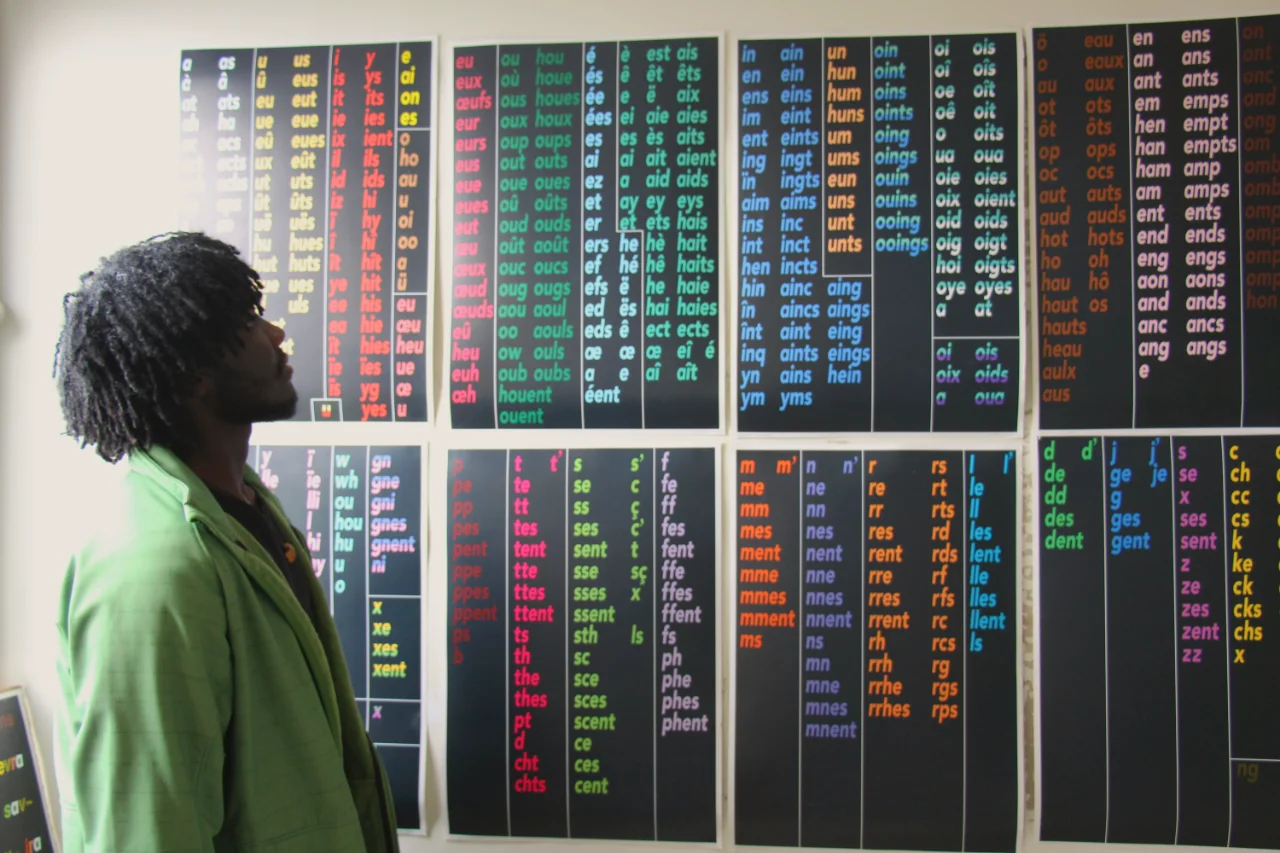 a as
à â
at ats
ah ha
ecs
ects
u us
û eus
eu eut
ue eue
eû eues
ux eût
ut uts
ût ûts
uë uës
hu hues
hut huts
ues
uls
i y
is ys
it its
ie ies
ix ient
il ils
id ids
iz hi
î hy
ï hî
ît hït
ye hit
ee his
ea hie
ït hies
ïe ïes
ïs yg
yes
e
ai
on
es
o
ho
au
u
oi
oo
a
ü
eu
œu
heu
ue
œ
u
eu
eux
œufs
eur
eurs
eus
eue
eues
eut
œu
œux
œud
œuds
eû
heu
euh
œh
ou hou
où houe
ous houes
oux houx
oup oups
out outs
oue oues
oû oûts
oud ouds
oût août
ouc oucs
oug ougs
aou aoul
oo aouls
ow ouls
oub oubs
houent
ouent
é
és
ée
ées
es
ai
ez
et
er
ers he
ef hé
efs ë
ed ës
eds ê
æ œ
a e
éent
è est ais
ê êt êts
e ë aix
ei aie aies
es ès aits
ai ait aient
a aid aids
ay ey eys
et ets hais
hè hait
hê haits
he haie
hai haies
ect ects
œ eî é
aî aît
in ain
en ein
ens eins
im eint
ent eints
ing ingt
ïn ingts
aim aims
ins inc
int inct
hen incts
hin ainc aing
în aincs aings
înt aint eing
inq aints eings
yn ains hein
ym yms
un
hun
hum
huns
um
ums
eun
uns
unt
unts
oin
oint
oins
oints
oing
oings
ouin
ouins
ooing
ooings
oi ois
oî oîs
oe oit
oê oît
o oits
ua oua
oie oies
oix oient
oid oids
oig oigt
hoi oigts
oye oyes
a at
oi ois
oix oids
a oua
ô eau
o eaux
au aux
ot ots
ôt ôts
op ops
oc ocs
aut auts
aud auds
hot hots
ho oh
hau hô
haut os
hauts
heau
aulx
aus
en ens
an ans
ant ants
em emps
hen empt
han empts
ham amp
am amps
ent ents
end ends
eng engs
aon aons
and ands
anc ancs
ang angs
e
y
ï
ïe
lli
l
hi
w
wh
ou
hou
hu
u
o
gn
gne
gni
gnes
gnent
ni
x
xe
xes
xent
x
p
pe
pp
pes
pent
ppe
ppes
ppent
ps
b
t t'
te
tt
tes
tent
tte
ttes
ttent
ts
th
the
thes
pt
d
cht
chts
s s'
se c
ss ç
ses c'
sent t
sse sç
sses x
ssent
sth ls
sc
sce
sces
scent
ce
ces
cent
f
fe
ff
fes
fent
ffe
ffes
ffent
fs
ph
phe
phes
phent
m m'
me
mm
mes
ment
mme
mmes
mment
ms
n n'
ne
nn
nes
nent
nne
nnes
nnent
ns
mn
mne
mnes
mnent
r rs
re rt
rr rts
res rd
rent rds
rre rf
rres rfs
rrent rc
rh rcs
rrh rg
rrhe rgs
rrhes rps
l l'
le
ll
les
lent
lle
lles
llent
ls
d d'
de
dd
des
dent
j j'
ge je
g
ges
gent
s
se
x
ses
sent
z
ze
zes
zent
zz
c
ch
cc
cs
k
ke
ck
cks
chs
x
ng